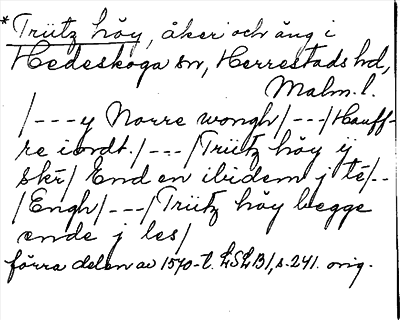 *Trütz höy, åker och äng i
Hedeskoga sn, Herrestads hd,
Malm. l.
/---y Norre wongh/---/Hauff-
re iordt./---/Trütz höy ij
skr̄/ End en ibidem j tē/--
/Engh/---/Trütz höy begge
ende j les/
förra delen av 1570-t. LSLB1, s. 241. orig.